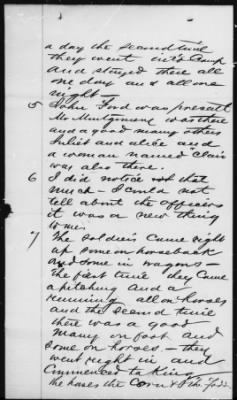 a day the second time
they went into Camp
and stayed there all
one day and all one
night —
5 John Ford was present
Mr Montgomery was there
and a good many others
Juliet and alice and
a woman named Clais
was also there.
6 I did notice not that
much — I could not
tell about the officers
it was a new thing
to me.
7 The soldiers Came right
up some on horseback
and some in wagons —
The first time they Came
a pitching and a
running all on horses
and the second time
there was a good
many on foot and
some on horses — they
went right in and
Commenced taking
the horses the Corn &